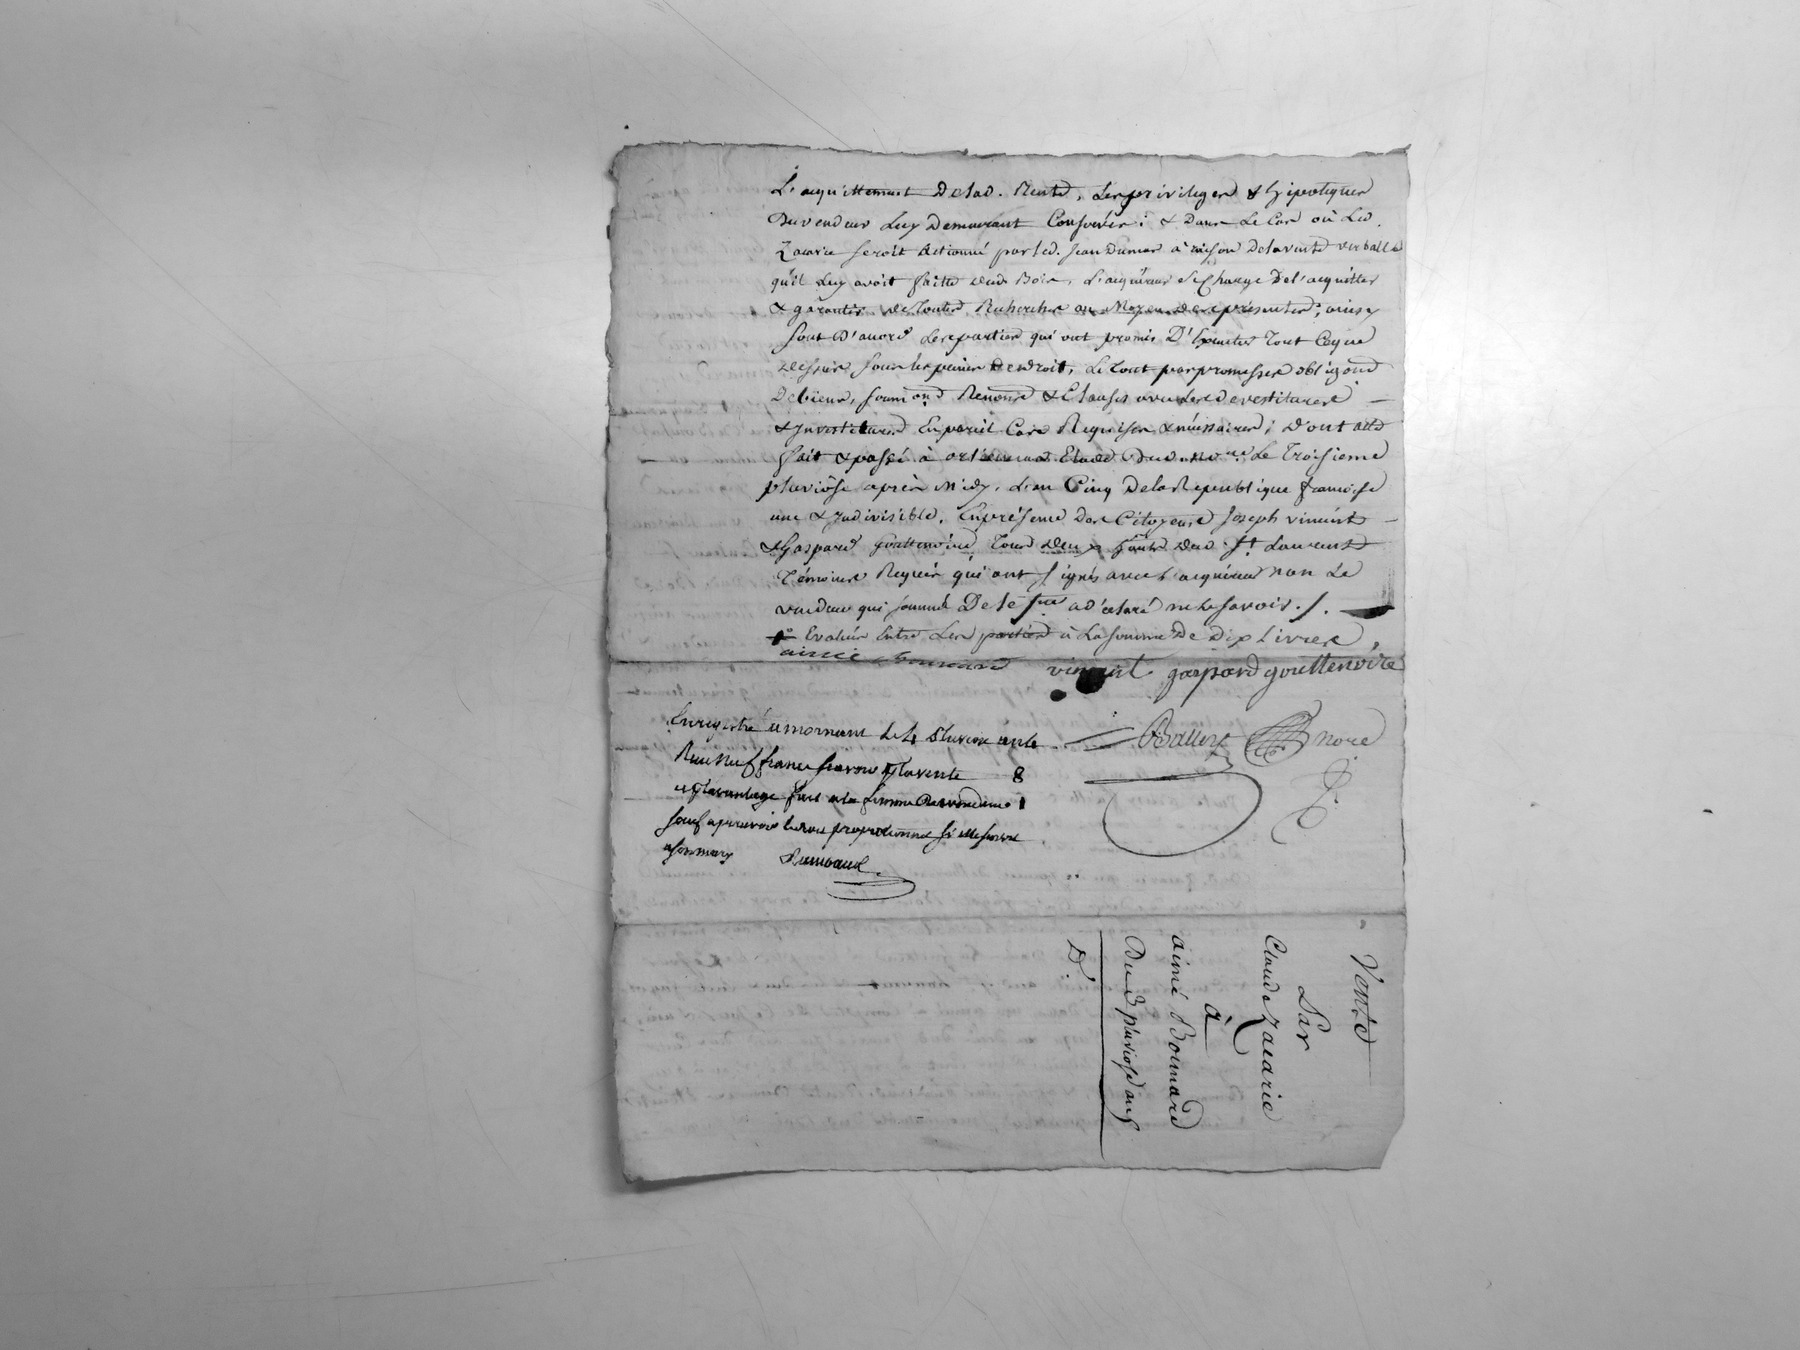 L'acquittement De lad. Rente, Les privileges & hipoteques
Du vendeur Luy Demeurant Conservés; & Dans Le Cas où Led.
Zacarie seroit Actionné par led. Jean Dumas à raison De la vente verballe
qu'il Luy avoit faitte dud. Bois, L'acquéreur se Charge De l'acquitter
& garantir de toutes Recherches au Moyen des présentes; ainsy
sont D'accord Les parties qui ont promis D'Executer Tout Ce que
dessus sous les peines de droit, Le Tout par promesses obligaons
De biens, soumions Renonce & Clauses avec les devestitures
& Investitures En pareil Cas Requises & nécessaires; D'ont acte
fait & passé à Etude Dud. noire Le Troisieme
pluviôse après Midy, L'an Cinq De la Republique francoise
une & Indivisible, En présence Des Citoyens Joseph vincent
& Gaspard gouttenoire Tous deux dud. St. Laurent
Témoins Requis qui ont signés avec l'acquéreur non Le
vendeur qui sommé De le fre a D'eclaré ne le savoir ./.
Evalués Entre Les parties à la somme De Dix Livres
aimé Bonnard vincent gaspard gouttenoire
Enregistré a mornant le 4 Pluviose an 5e
Recu Neuf francs savoir pr la vente 8
et pr l'avantage fait a la femme 1
sauf a percevoir le droit proportionnel si elle survit
a son mary Rambaud
Balley nore
Vente
Par
Claude Zacarie
à
aimé Bonnard
Du 3 pluviose an 5